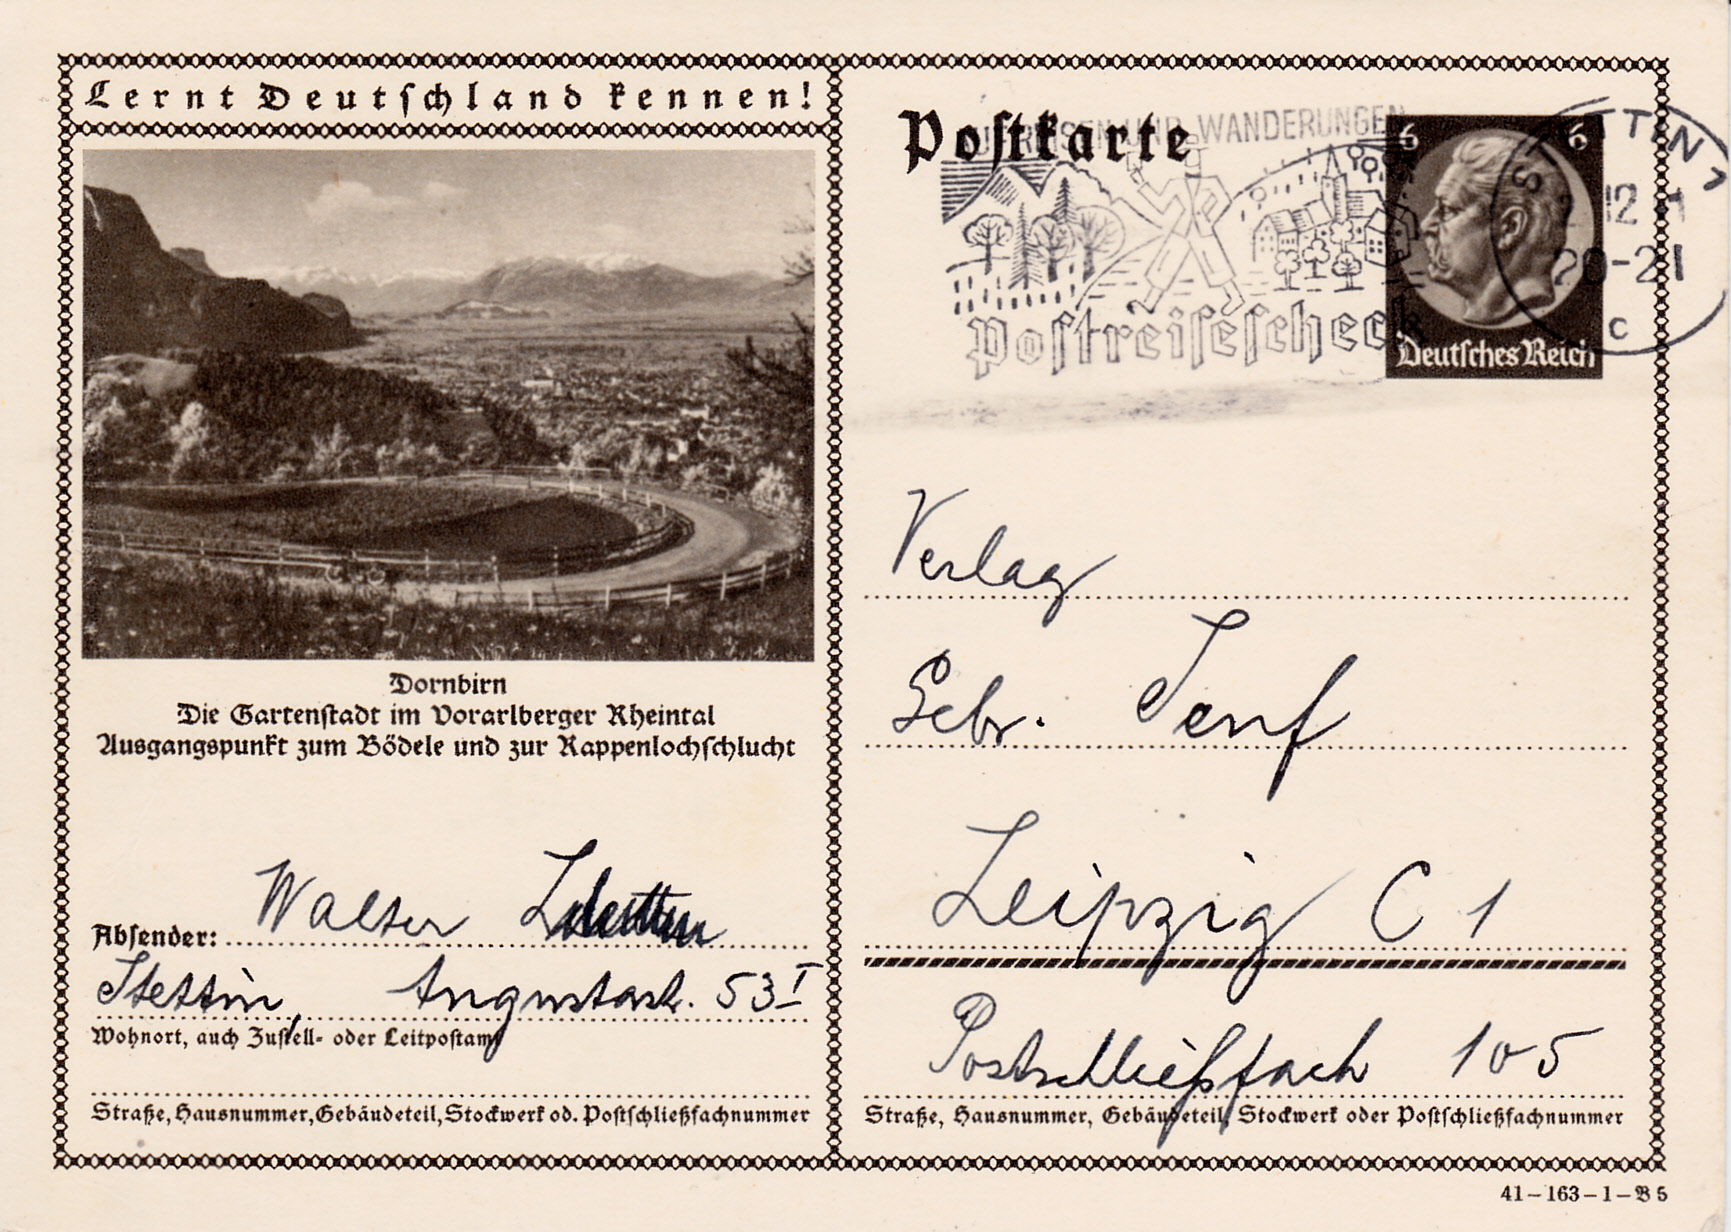 Lernt Deutschland kennen!
Dornbirn
Die Gartenstadt im Vorarlberger Rheintal
Ausgangspunkt zum Bödele und zur Rappenlochschlucht
Absender: Walter
Stettin, Augustastr. 53 I
Wohnort, auch Zustell- oder Leitpostamt
Straße, Hausnummer, Gebäudeteil, Stockwerk od. Postschließfachnummer
Postkarte
REISEN UND WANDERUNGEN
Postreisescheck
6 6
Deutsches Reich
STETTIN 1
12 41
20-21
c
Verlag
Gebr. Senf
Leipzig C 1
Postschließfach 105
Straße, Hausnummer, Gebäudeteil, Stockwerk oder Postschließfachnummer
41-163-1-B5